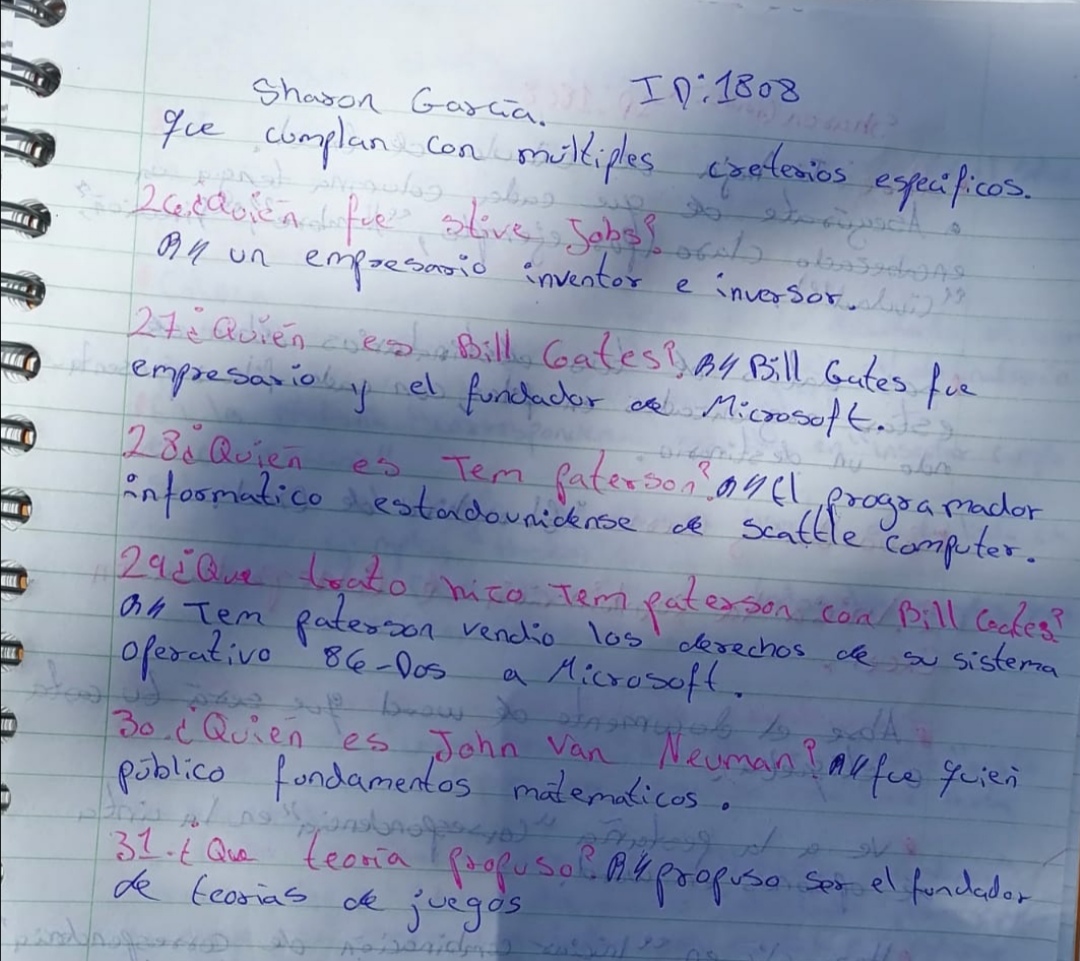 Sharon García. ID:1808
que cumplan con múltiples creterios específicos.
26.¿Quién fue stive Jobs?
R// un empresario inventor e inversor.
27¿Quién es Bill Gates? R// Bill Gates fue
empresario y el fundador de Microsoft.
28¿Quién es Tem paterson? R// El programador
informatico estadounidense de scattle computer.
29¿Que trato hizo Tem paterson con Bill Gates?
R// Tem paterson vendio los derechos de su sistema
operativo 86-Dos a Microsoft.
30.¿Quién es John Van Neuman? R// fue quien
público fundamentos matematicos.
31.¿Que teoría propuso? R// propuso ser el fundador
de teorias de juegos